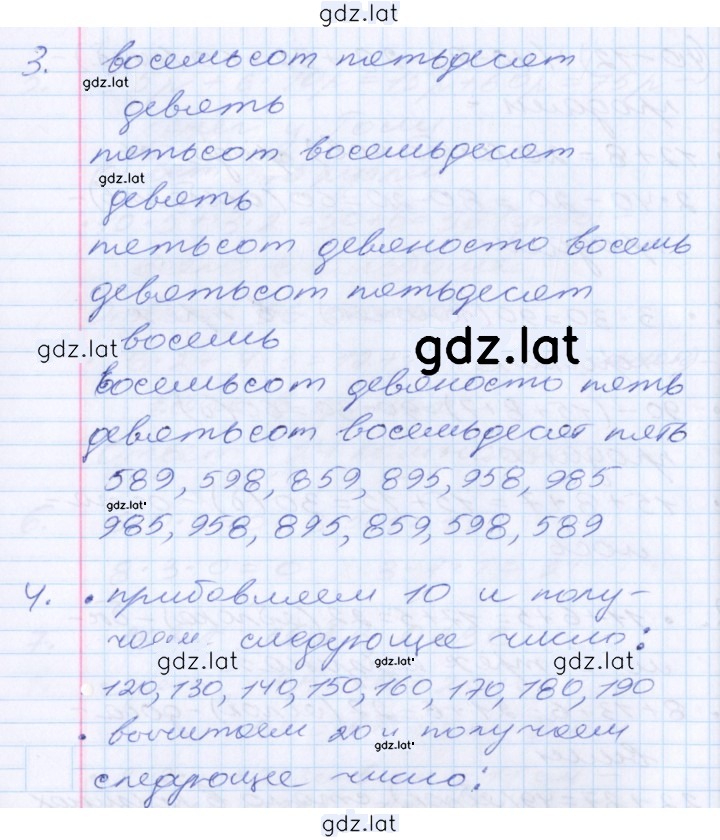 gdz.lat
3. восемьсот пятьдесят
gdz.lat
девять
пятьсот восемьдесят
gdz.lat
девять
пятьсот девяносто восемь
девятьсот пятьдесят
gdz.lat восемь
gdz.lat
восемьсот девяносто пять
девятьсот восемьдесят пять
589, 598, 859, 895, 958, 985
gdz.lat
985, 958, 895, 859, 598, 589
4. • прибавляем 10 и полу-
чаем следующее число:
gdz.lat gdz.lat gdz.lat
120, 130, 140, 150, 160, 170, 180, 190
• вычитаем 20 и получаем
gdz.lat
следующее число:
gdz.lat